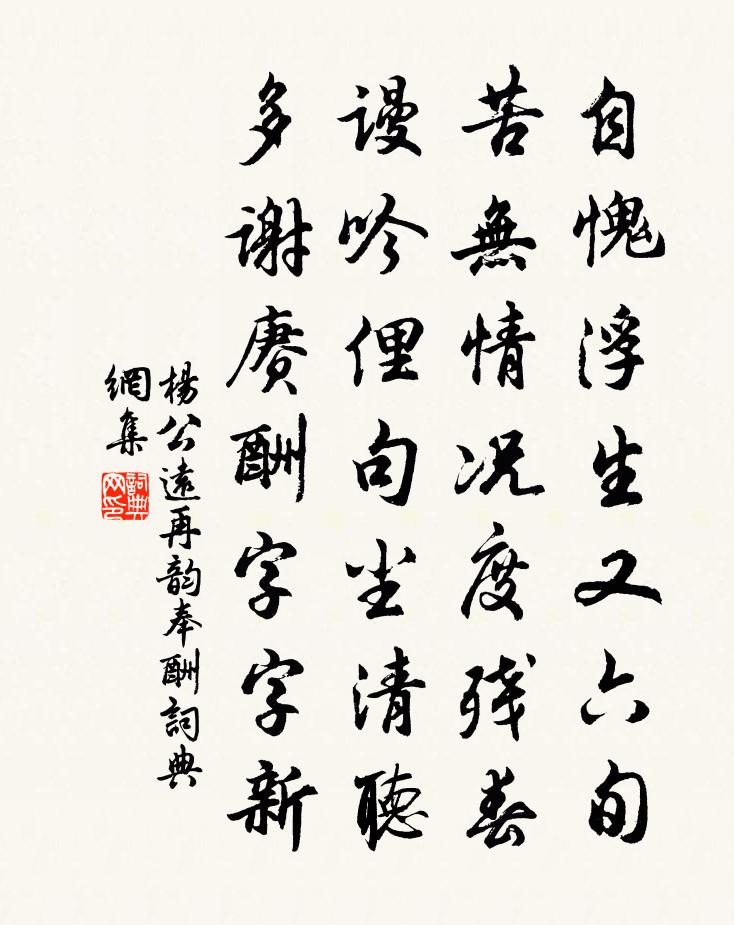 自愧浮生又六旬
苦無情況度残春
謾吟俚句尘清聴
多谢赓酬字字新
楊公遠再韵奉酬詞典
網集
詞典
网印